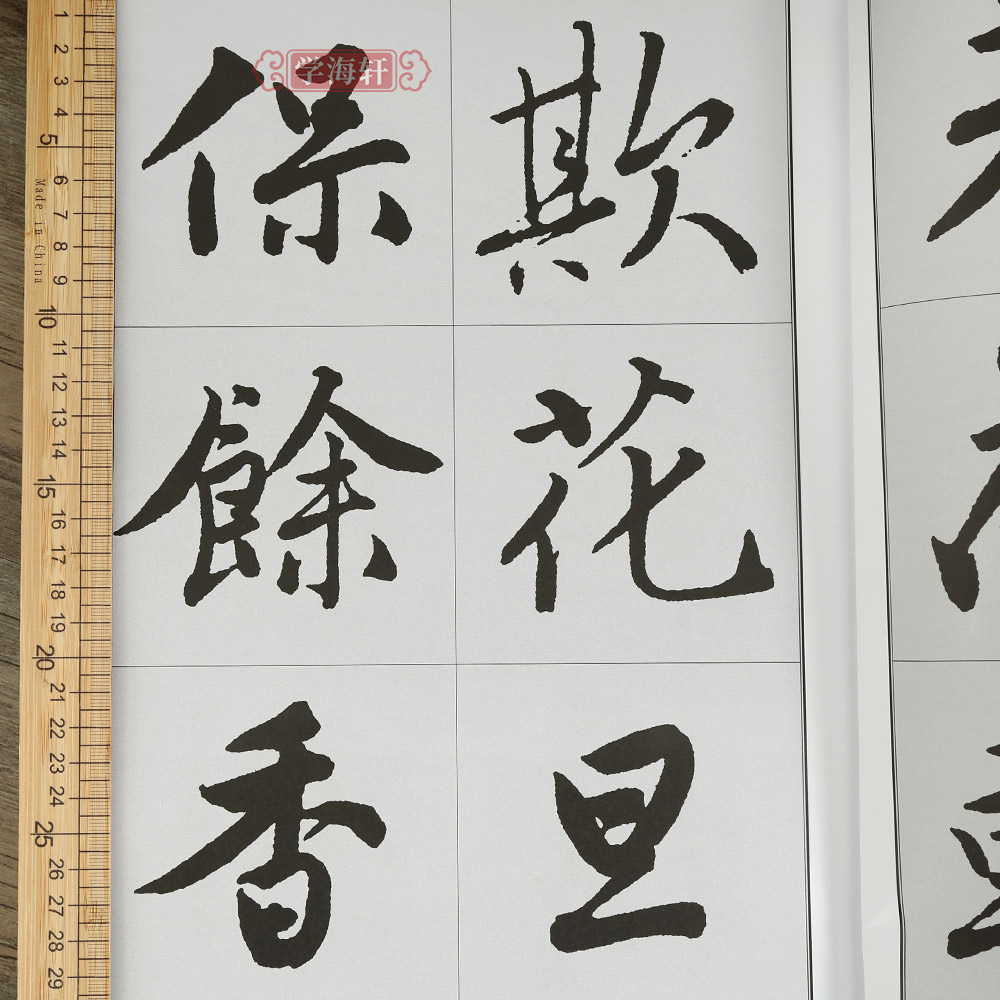 欺花旦
保餘香
学海轩
1 2 3 4 5 6 7 8 9 10 11 12 13 14 15 16 17 18 19 20 21 22 23 24 25 26 27 28 29
Made in China